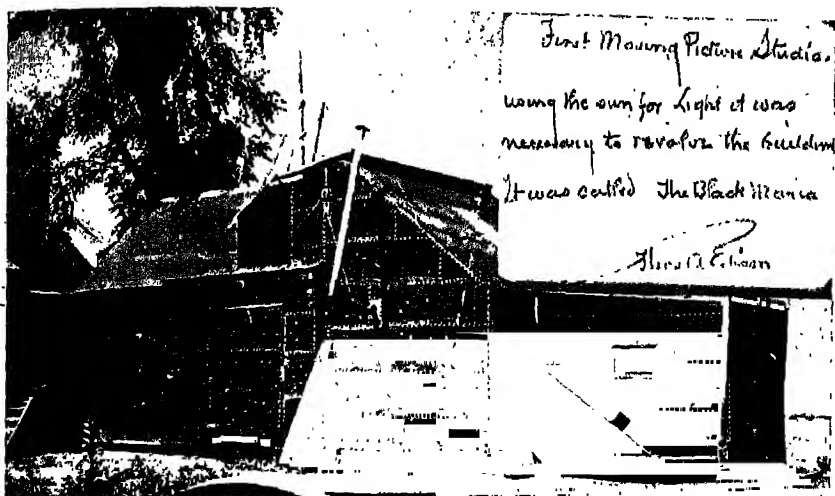 First Moving Picture Studio.
using the sun for light it was
necessary to revolve the building
It was called The Black Maria
Thos A Edison